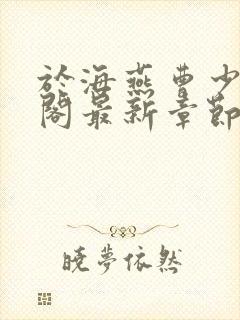 於海燕曹少
閣最新章節
曉夢依然